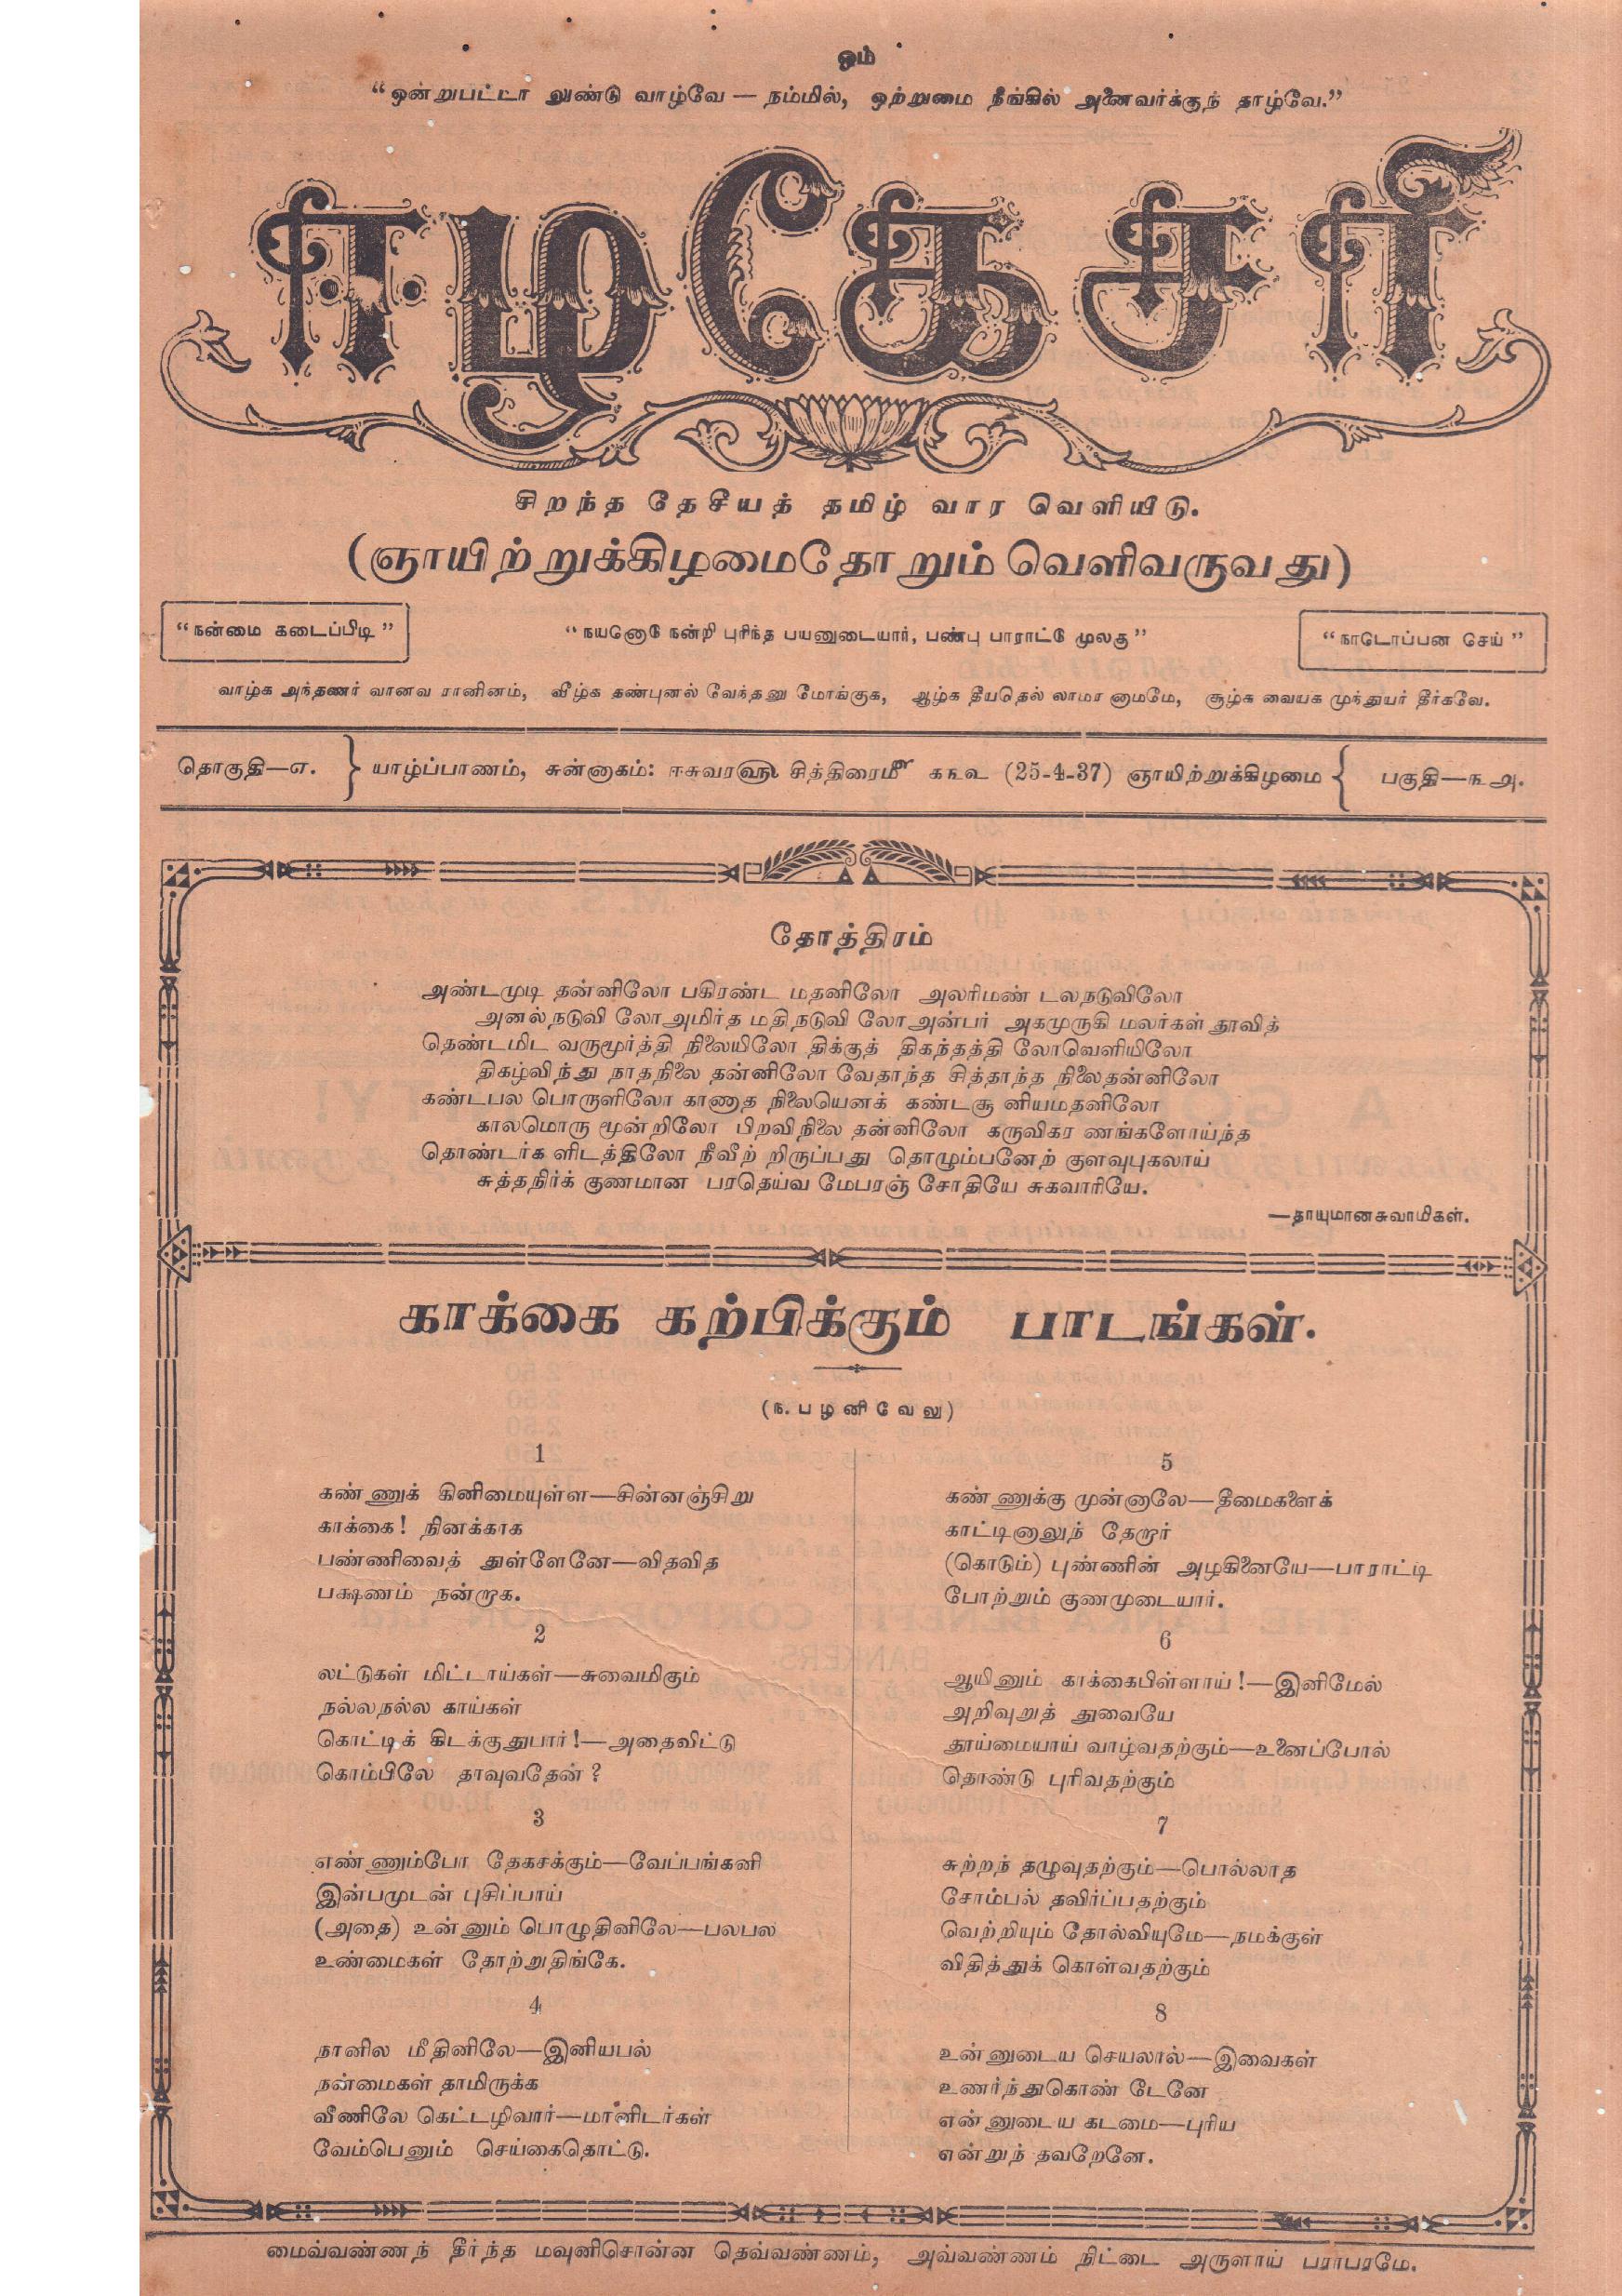 ஓம்
“ஒன்றுபட்டா லுண்டு வாழ்வே — நம்மில், ஒற்றுமை நீங்கில் அனைவர்க்குந் தாழ்வே.”
ஈழகேசரி
சிறந்த தேசீயத் தமிழ் வார வெளியீடு.
(ஞாயிற்றுக்கிழமைதோறும் வெளிவருவது)
“நன்மை கடைப்பிடி”
“நயனொடு நன்றி புரிந்த பயனுடையார், பண்பு பாராட்டு முலகு”
“நாடொப்பன செய்”
வாழ்க அந்தணர் வானவ ரானினம், வீழ்க தண்புனல் வேந்தனு மோங்குக, ஆழ்க தீயதெல் லாமர னாமமே, சூழ்க வையக முந்துயர் தீர்கவே.
தொகுதி—எ. } யாழ்ப்பாணம், சுன்னாகம்: ஈசுவர௵ சித்திரை௴ கங௨ (25-4-37) ஞாயிற்றுக்கிழமை { பகுதி—ங அ.
தோத்திரம்
அண்டமுடி தன்னிலோ பகிரண்ட மதனிலோ அலரிமண் டலநடுவிலோ
அனல்நடுவி லோஅமிர்த மதிநடுவி லோஅன்பர் அகமுருகி மலர்கள் தூவித்
தெண்டமிட வருமூர்த்தி நிலையிலோ திக்குத் திகந்தத்தி லோவெளியிலோ
திகழ்விந்து நாதநிலை தன்னிலோ வேதாந்த சித்தாந்த நிலைதன்னிலோ
கண்டபல பொருளிலோ காணாத நிலையெனக் கண்டசூ னியமதனிலோ
காலமொரு மூன்றிலோ பிறவிநிலை தன்னிலோ கருவிகர ணங்களோய்ந்த
தொண்டர்க ளிடத்திலோ நீவீற் றிருப்பது தொழும்பனேற் குளவுபுகலாய்
சுத்தநிர்க் குணமான பரதெய்வ மேபரஞ் சோதியே சுகவாரியே.
—தாயுமானசுவாமிகள்.
காக்கை கற்பிக்கும் பாடங்கள்.
(ந. பழனிவேலு)
1
கண்ணுக் கினிமையுள்ள—சின்னஞ்சிறு
காக்கை! நினக்காக
பண்ணிவைத் துள்ளேனே—விதவித
பக்ஷணம் நன்றாக.
2
லட்டுகள் மிட்டாய்கள்—சுவைமிகும்
நல்லநல்ல காய்கள்
கொட்டிக் கிடக்குதுபார்!—அதைவிட்டு
கொம்பிலே தாவுவதேன்?
3
எண்ணும்போ தேகசக்கும்—வேப்பங்கனி
இன்பமுடன் புசிப்பாய்
(அதை) உன்னும் பொழுதினிலே—பலபல
உண்மைகள் தோற்றுதிங்கே.
4
நானில மீதினிலே—இனியபல்
நன்மைகள் தாமிருக்க
வீணிலே கெட்டழிவார்—மானிடர்கள்
வேம்பெனும் செய்கைதொட்டு.
5
கண்ணுக்கு முன்னாலே—தீமைகளைக்
காட்டினாலுந் தேறார்
(கொடும்) புண்ணின் அழகினையே—பாராட்டி
போற்றும் குணமுடையார்.
6
ஆயினும் காக்கைபிள்ளாய்!—இனிமேல்
அறிவுறுத் துவையே
தூய்மையாய் வாழ்வதற்கும்—உனைப்போல்
தொண்டு புரிவதற்கும்
7
சுற்றந் தழுவுதற்கும்—பொல்லாத
சோம்பல் தவிர்ப்பதற்கும்
வெற்றியும் தோல்வியுமே—நமக்குள்
விதித்துக் கொள்வதற்கும்
8
உன்னுடைய செயலால்—இவைகள்
உணர்ந்துகொண் டேனே
என்னுடைய கடமை—புரிய
என்றுந் தவறேனே.
மைவ்வண்ணந் தீர்ந்த மவுனிசொன்ன தெவ்வண்ணம், அவ்வண்ணம் நிட்டை அருளாய் பராபரமே.